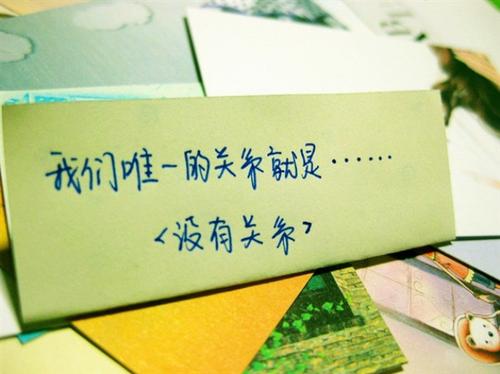 我们唯一的关系就是……
<没有关系>